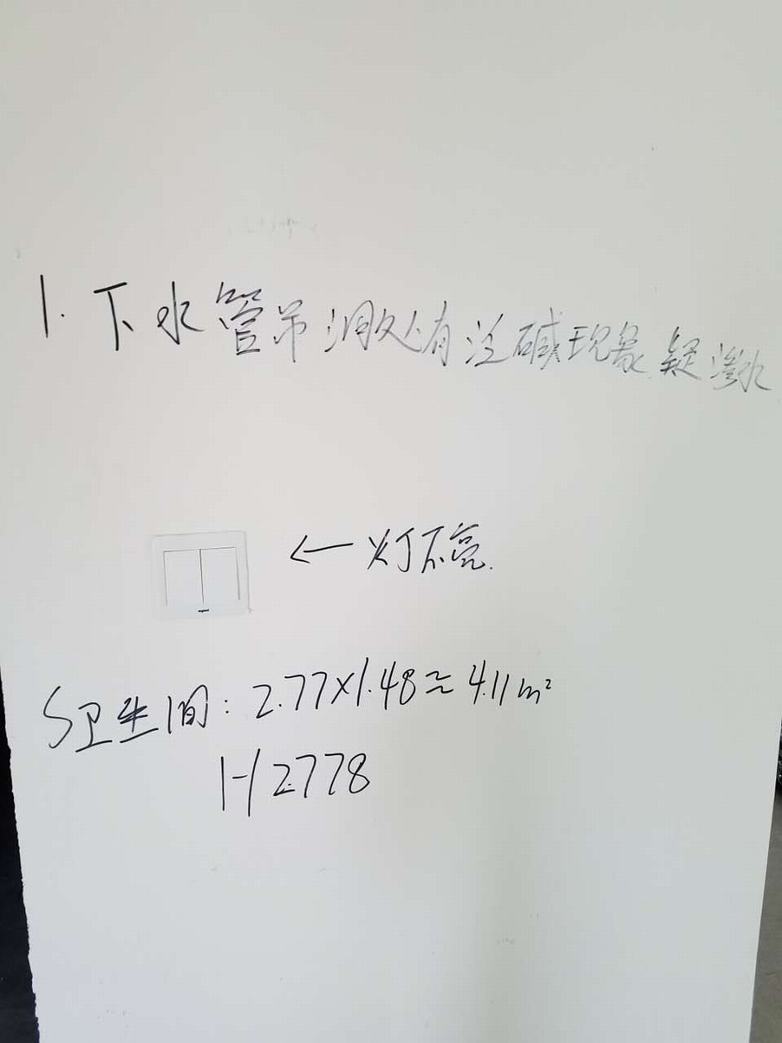 1. 下水管吊洞处有泛碱现象疑渗水
← 灯不亮.
S卫生间: 2.77×1.48≈4.11m²
H 2.778